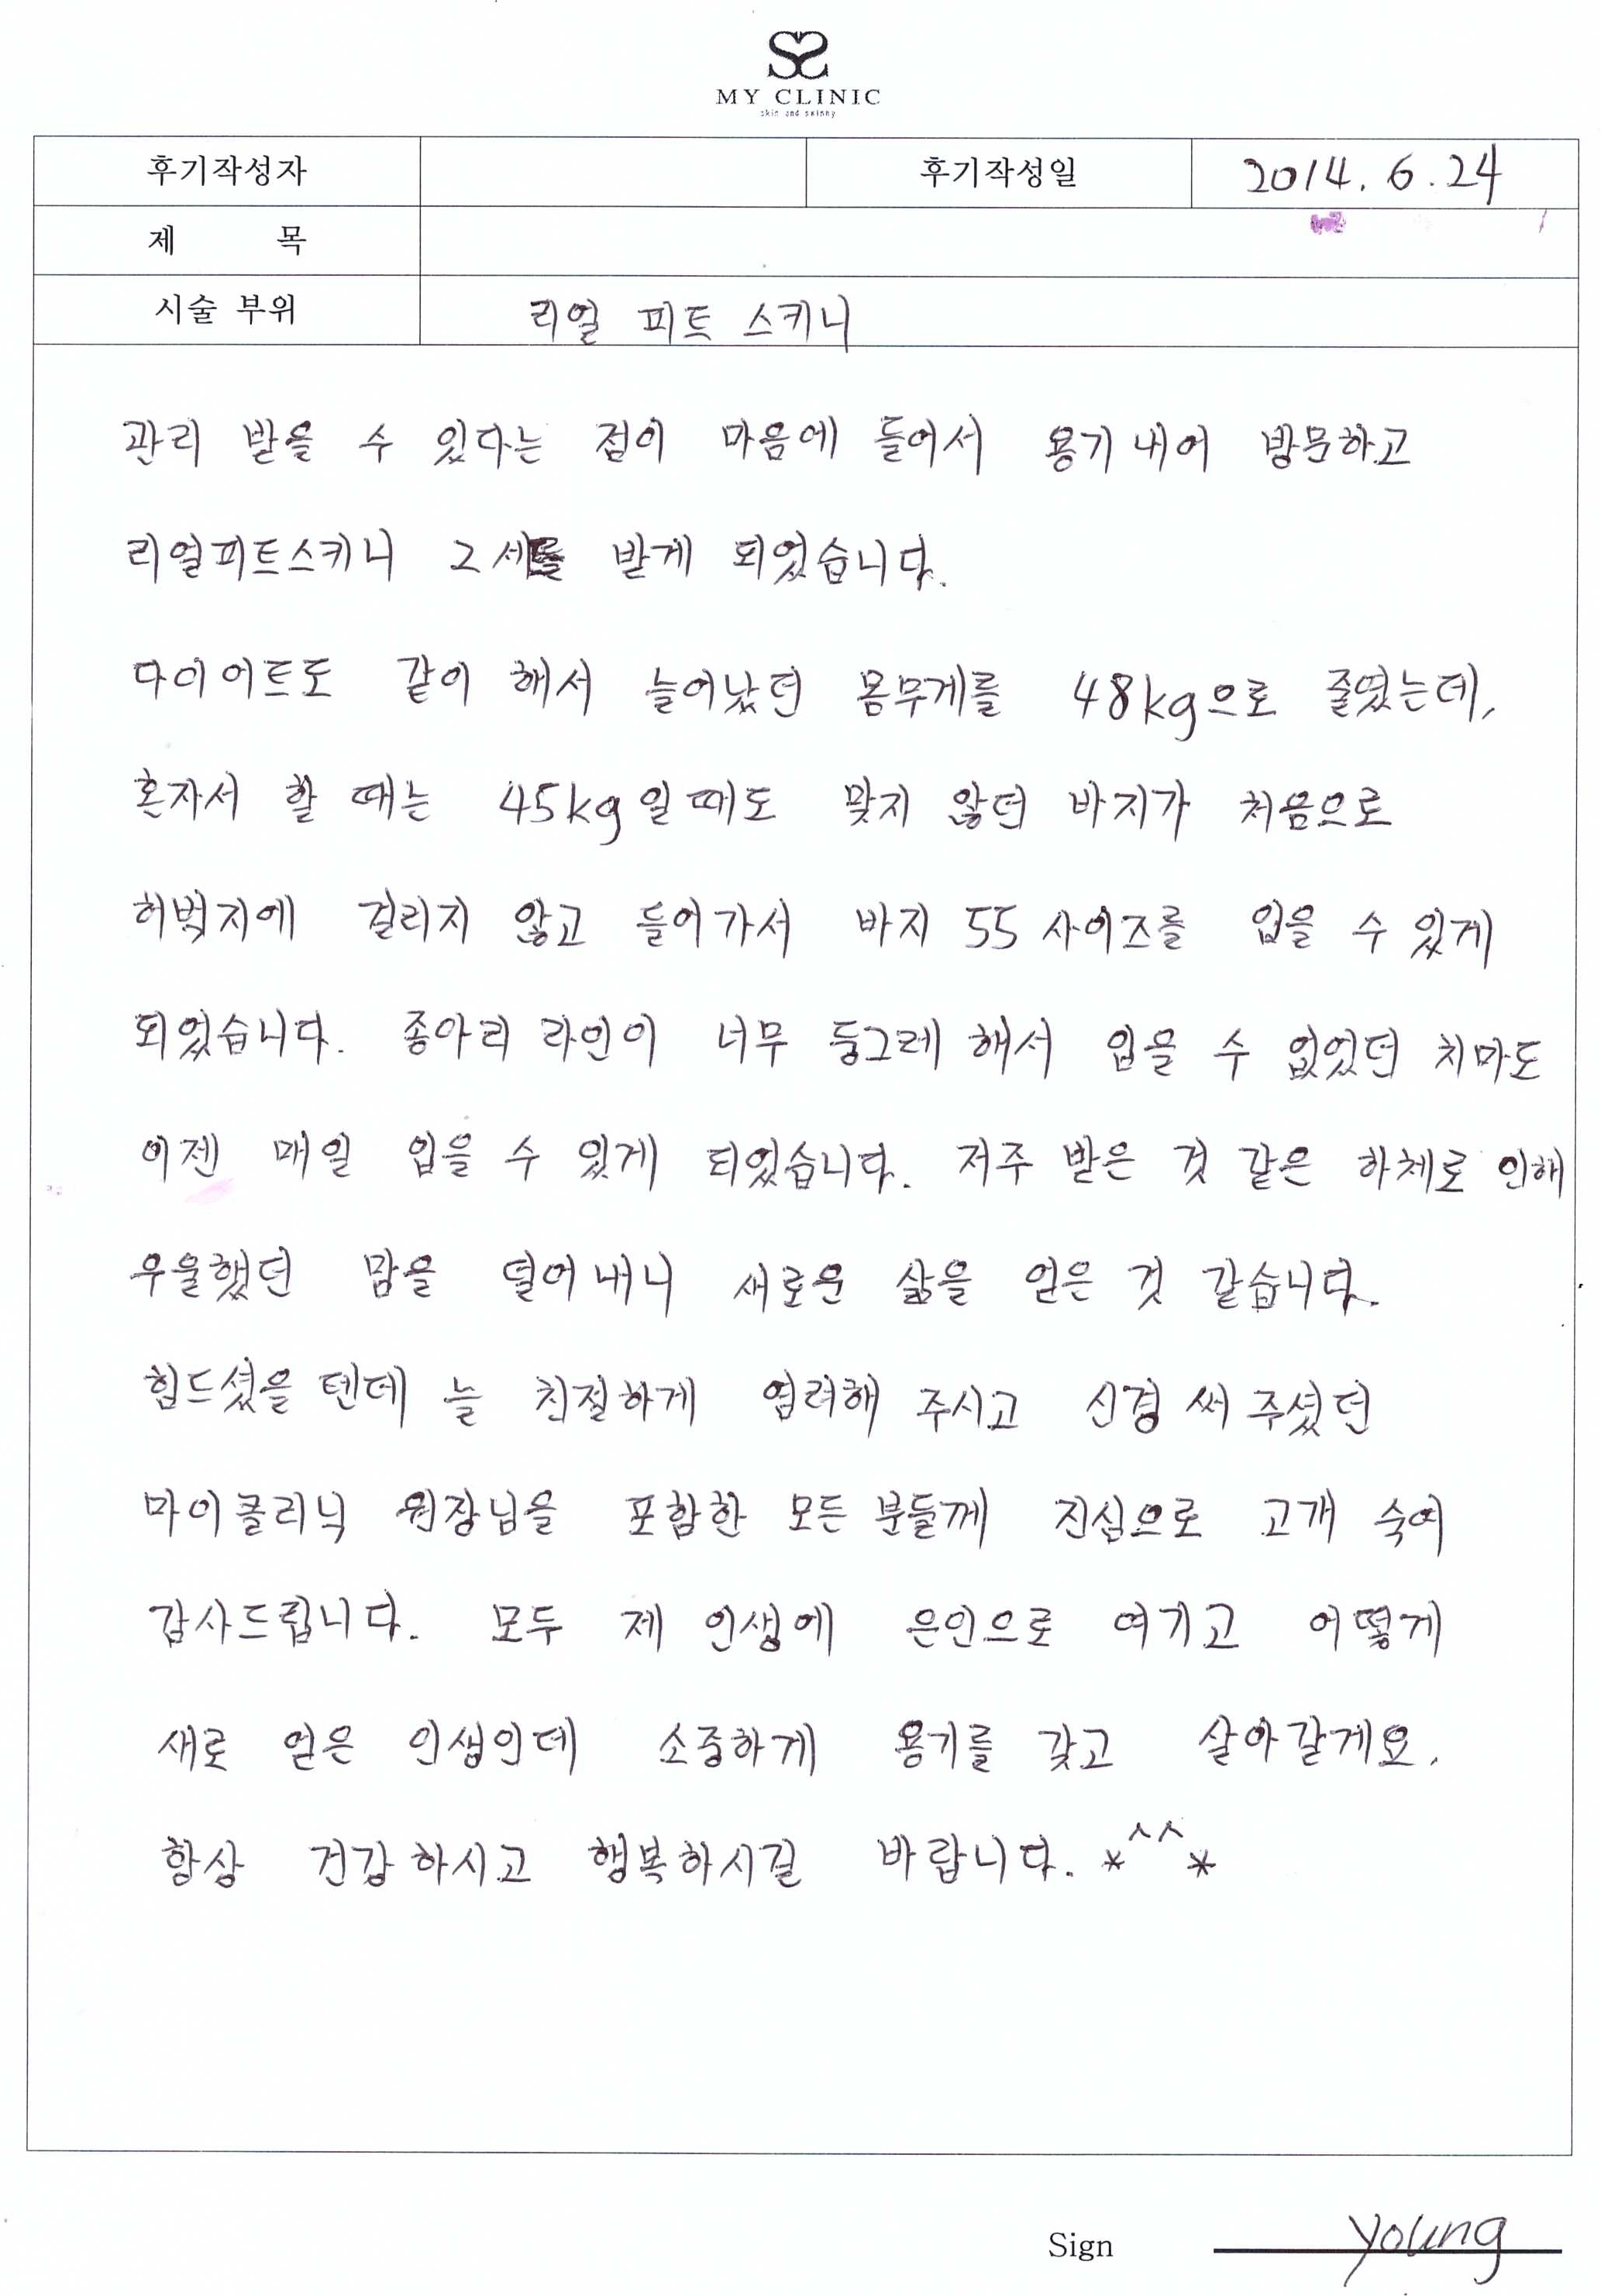 MY CLINIC
skin and skinny
후기작성자 후기작성일 2014. 6. 24
제 목
시술 부위 리얼 피트 스키니
관리 받을 수 있다는 점이 마음에 들어서 용기내어 방문하고
리얼피트스키니 2세를 받게 되었습니다.
다이어트도 같이 해서 늘어났던 몸무게를 48kg으로 줄였는데,
혼자서 할 때는 45kg일때도 맞지 않던 바지가 처음으로
허벅지에 걸리지 않고 들어가서 바지 55 사이즈를 입을 수 있게
되었습니다. 종아리 라인이 너무 둥그레 해서 입을 수 없었던 치마도
이젠 매일 입을 수 있게 되었습니다. 저주 받은 것 같은 하체로 인해
우울했던 맘을 덜어내니 새로운 삶을 얻은 것 같습니다.
힘드셨을 텐데 늘 친절하게 염려해 주시고 신경 써 주셨던
마이클리닉 원장님을 포함한 모든 분들께 진심으로 고개 숙여
감사드립니다. 모두 제 인생에 은인으로 여기고 어떻게
새로 얻은 인생인데 소중하게 용기를 갖고 살아갈게요.
항상 건강하시고 행복하시길 바랍니다. *^^*
Sign young